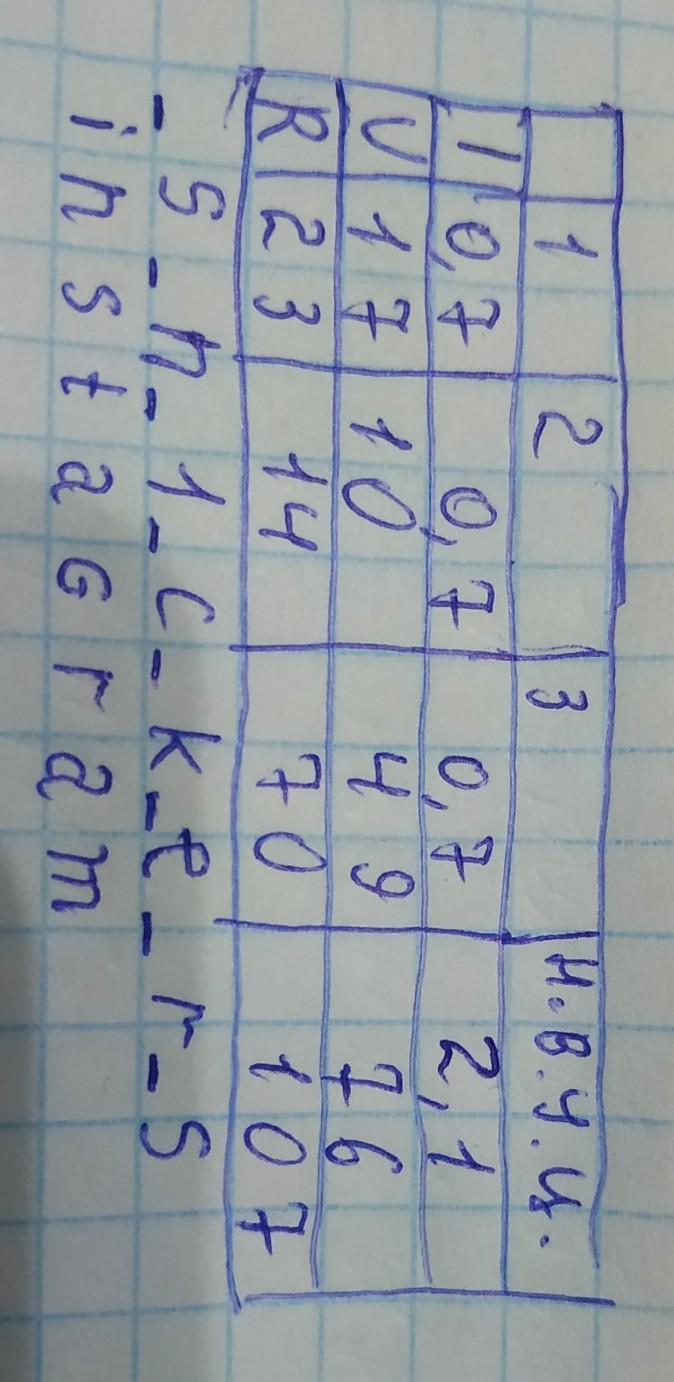 1 2 3 н.в.у.ц.
I 0,7 0,7 0,7 2,1
U 17 10 49 76
R 23 14 70 107
_S_n_1_c_k_e_r_S
instaGram